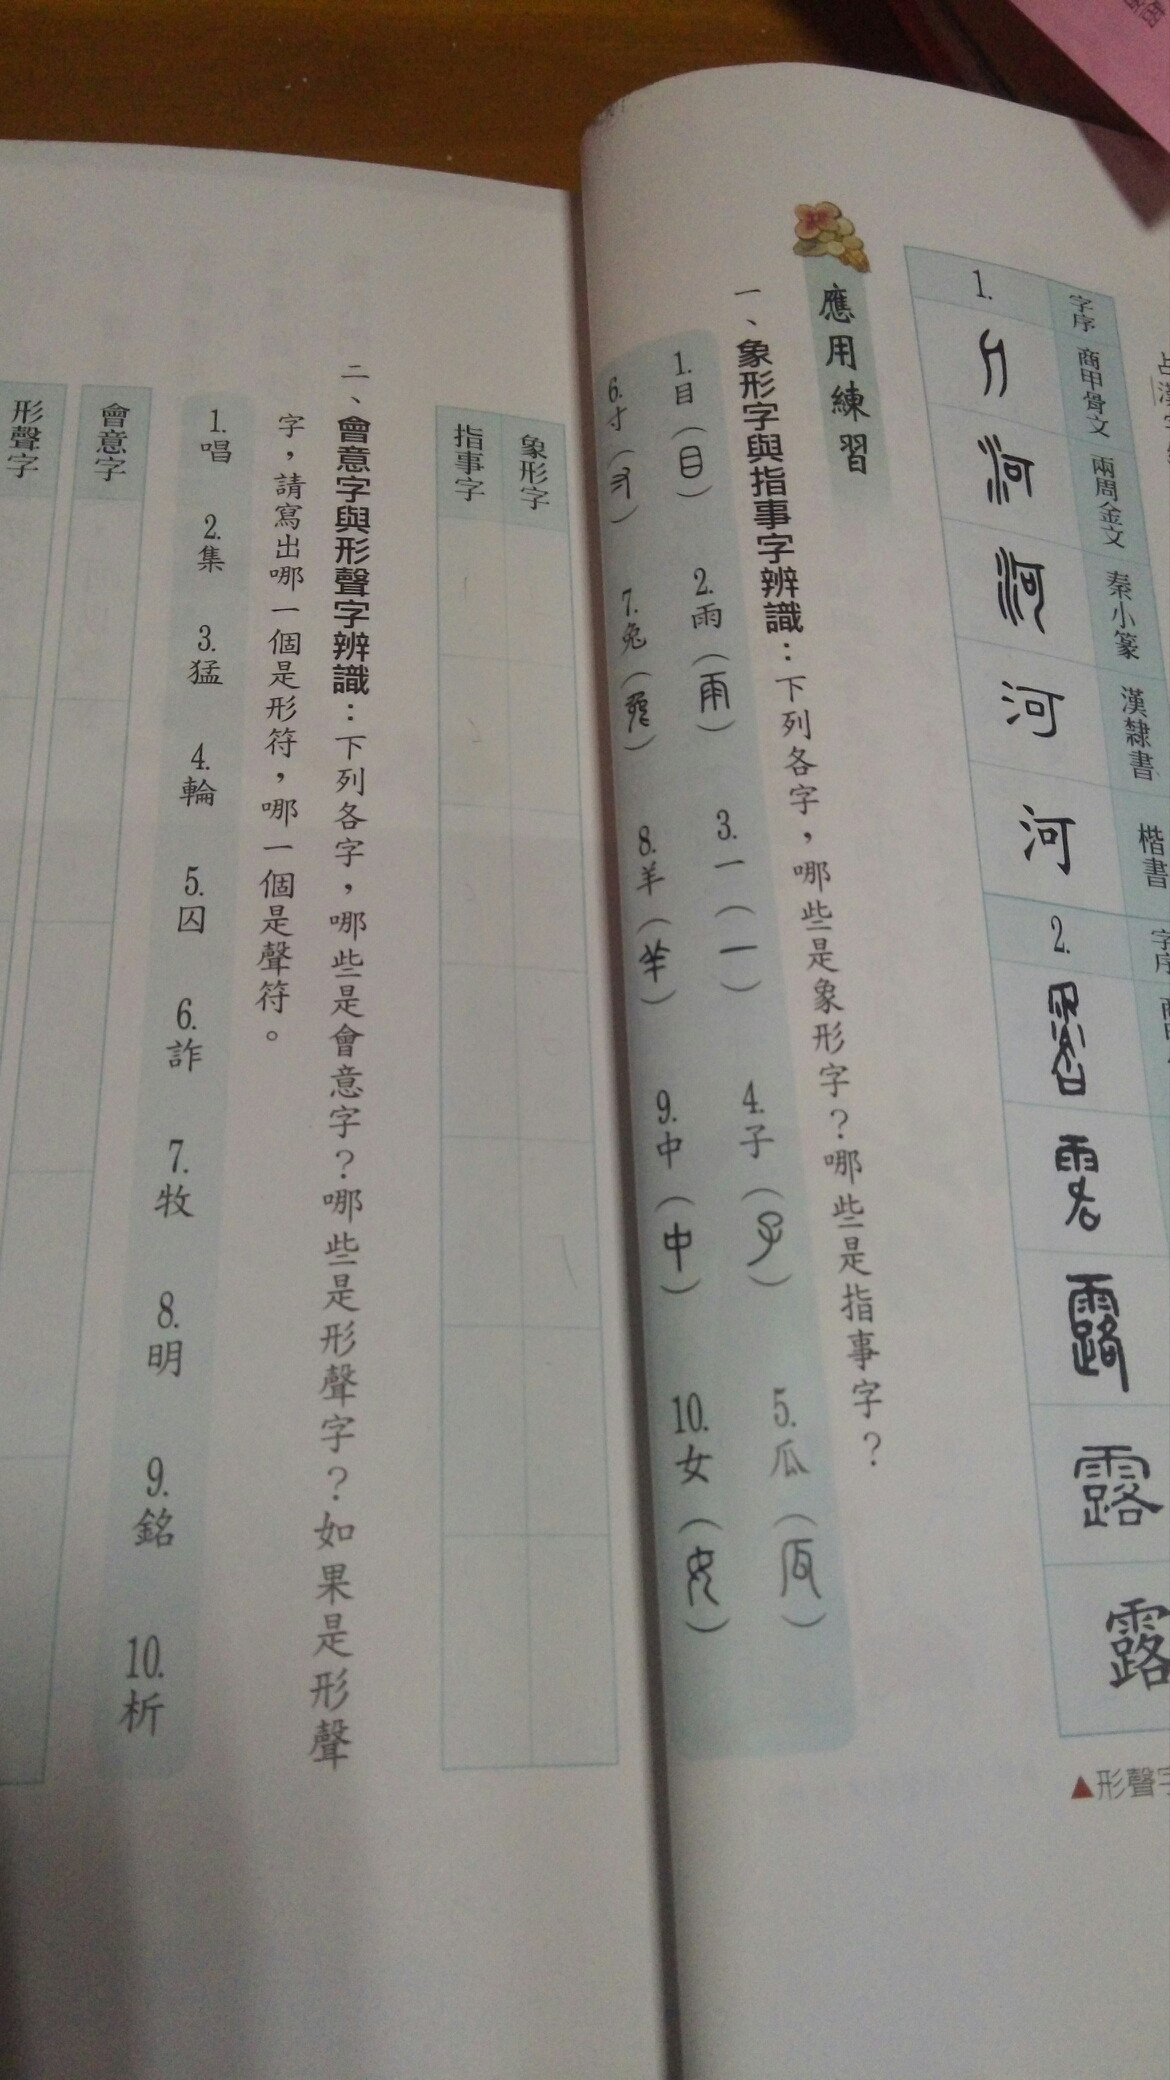 字序 商甲骨文 兩周金文 秦小篆 漢隸書 楷書 字序
1. 河 河 2. 露 露
▲形聲字
應用練習
一、象形字與指事字辨識：下列各字，哪些是象形字？哪些是指事字？
1.目（目） 2.雨（雨） 3.一（一） 4.子（子） 5.瓜（瓜）
6.寸（寸） 7.兔（兔） 8.羊（羊） 9.中（中） 10.女（女）
象形字
指事字
二、會意字與形聲字辨識：下列各字，哪些是會意字？哪些是形聲字？如果是形聲
字，請寫出哪一個是形符，哪一個是聲符。
1.唱 2.集 3.猛 4.輪 5.囚 6.詐 7.牧 8.明 9.銘 10.析
會意字
形聲字